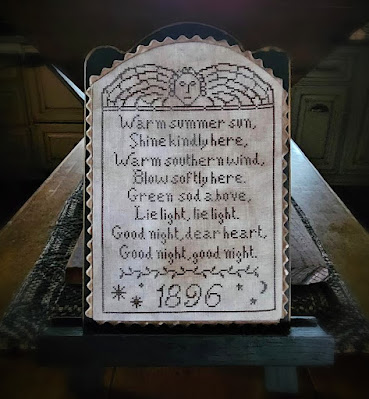 Warm summer sun,
Shine kindly here,
Warm southern wind,
Blow softly here.
Green sod above,
Lie light, lie light.
Good night, dear heart,
Good night, good night.
1896